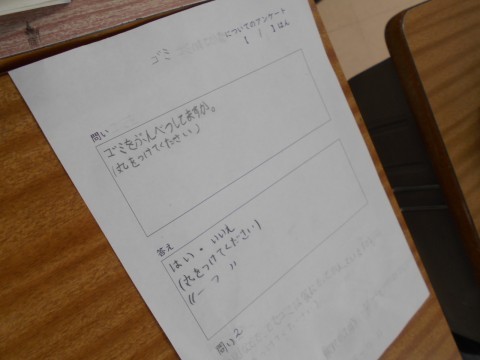 ゴミ についてのアンケート
【 1 】はん
問い
ゴミをぶんべつしてますか。
(丸をつけてください)
答え
はい・いいえ
(丸をつけてください)
問い2